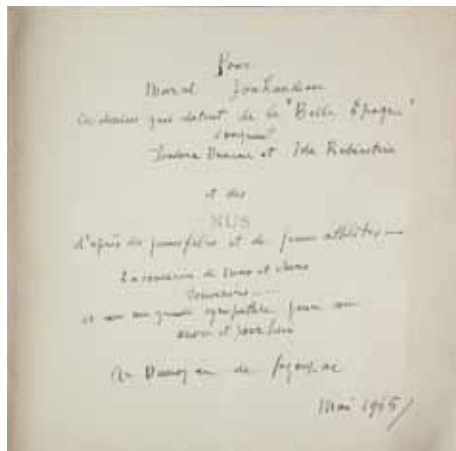 Pour
Marcel Jouhandeau
Ces dessins qui datent de la "Belle Époque"
Isadora Duncan et Ida Rubinstein
et des
NUS
d'après de jeunes filles et de jeunes athlètes
En souvenir de
souvenirs
et avec ma grande sympathie pour son
A. Dunoyer de Segonzac
Mai 1965